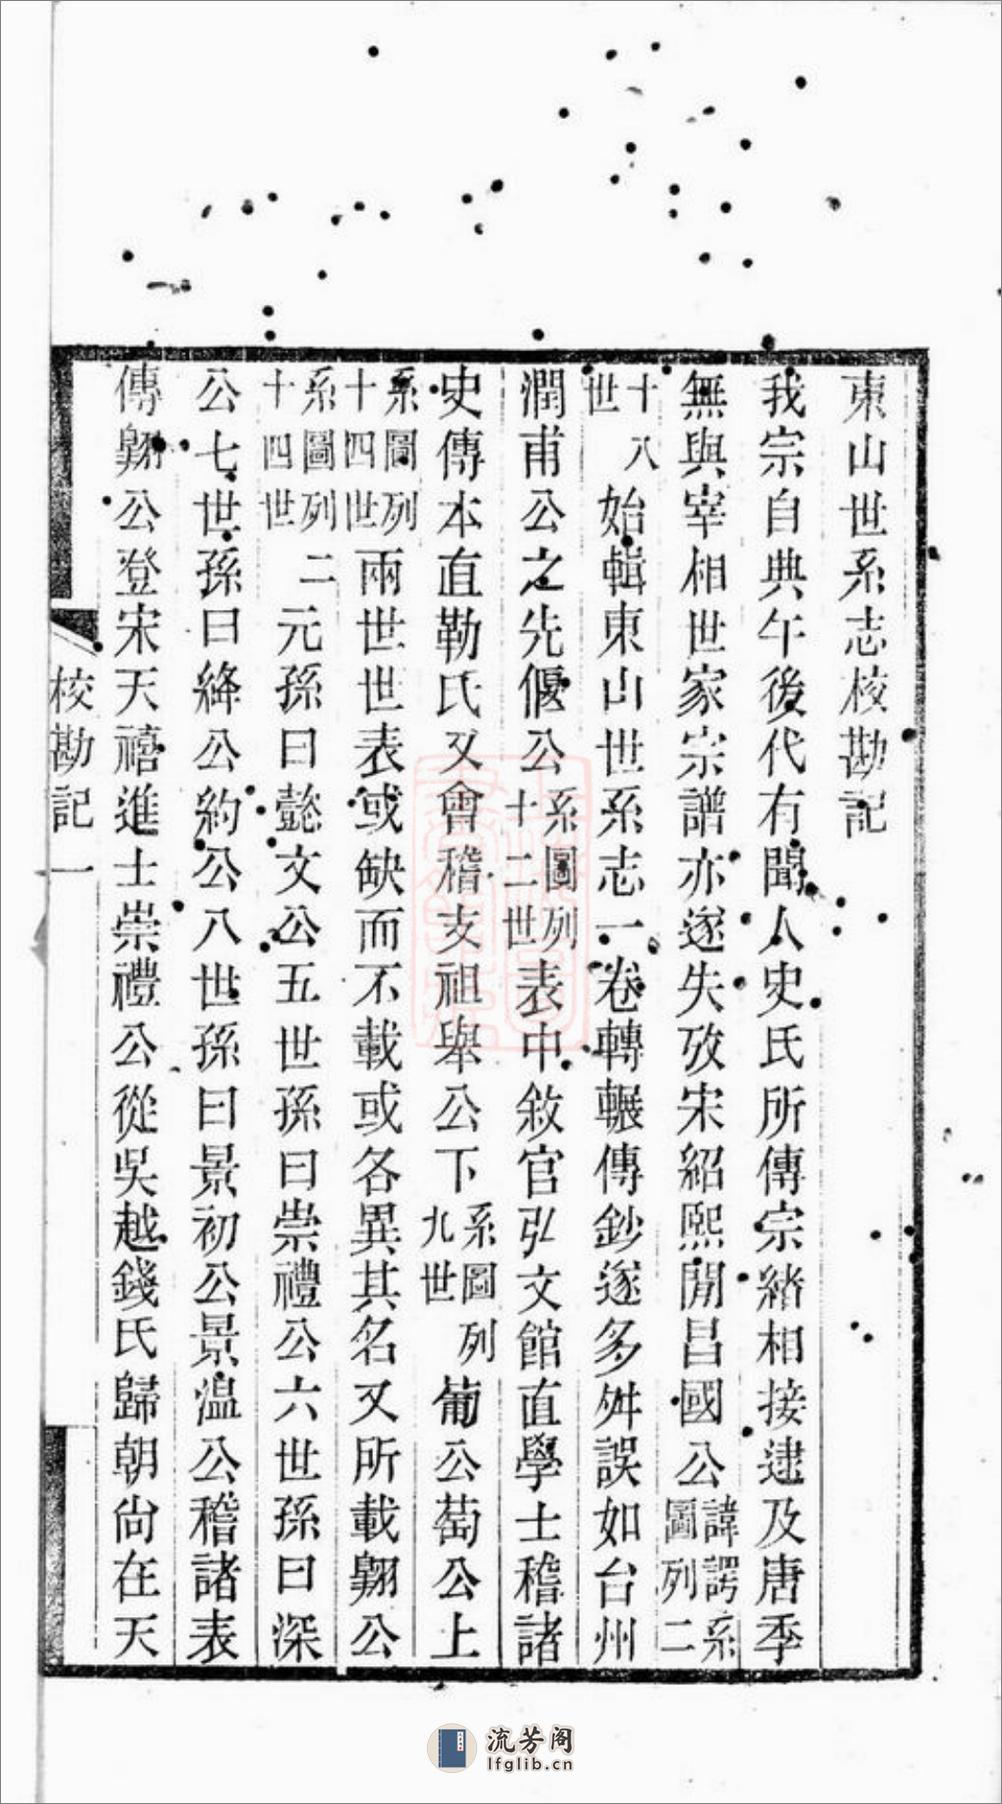 東山世系志校勘記
我宗自典午後代有聞人史氏所傳宗緒相接逮及唐季
無與宰相世家宗譜亦遂失攷宋紹熙閒昌國公諱諤系圖列二
十八世始輯東山世系志一卷轉輾傳鈔遂多舛誤如台州
潤甫公之先偃公系圖列十二世表中敘官弘文館直學士稽諸
史傳本直勒氏又會稽支祖舉公下系圖列九世葡公萄公上
系圖列十四世兩世世表或缺而不載或各異其名又所載翺公
系圖列二十四世元孫曰懿文公五世孫曰崇禮公六世孫曰深
公七世孫曰絳公約公八世孫曰景初公景溫公稽諸表
傳翺公登宋天禧進士崇禮公從吳越錢氏歸朝尙在天
校勘記 一
流芳阁
lfglib.cn